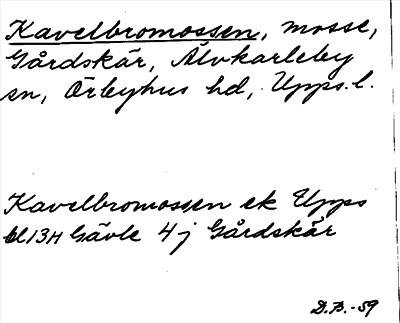 Kavelbromossen, mosse,
Gårdskär, Älvkarleby
sn, Örbyhus hd, Upps. l.
Kavelbromossen ek Upps
bl 13H Gävle 4j Gårdskär
D.B.-59